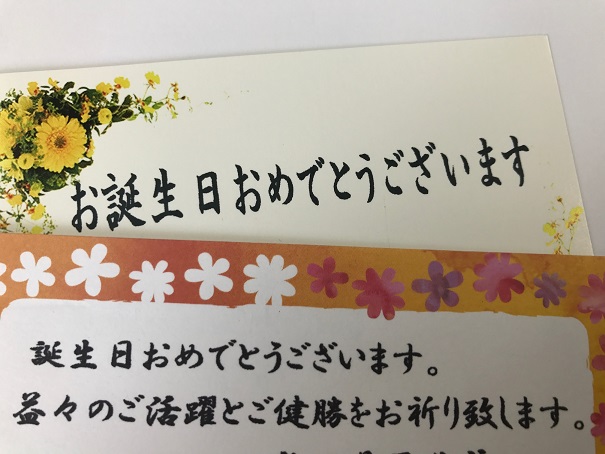 お誕生日おめでとうございます
誕生日おめでとうございます。
益々のご活躍とご健勝をお祈り致します。